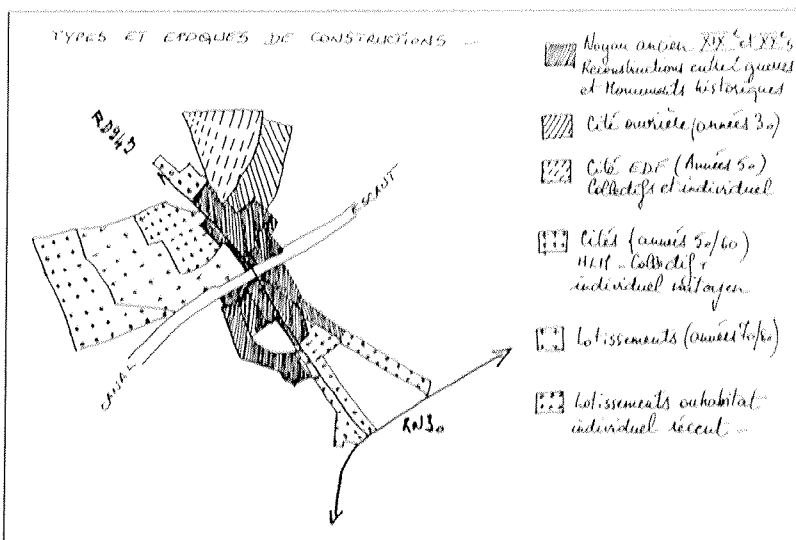 TYPES ET EPOQUES DE CONSTRUCTIONS -
RD943
ESCAUT
CANAL
RN30
Noyau ancien XIXe et XXes
Reconstructions entre 2 guerres
et Monuments historiques
Cité ouvrière (années 30)
Cité EDF (Années 50)
Collectifs et individuel
Cités (années 50/60)
HLM - Collectif +
individuel mitoyen
Lotissements (années 70/80)
Lotissements ou habitat
individuel récent -